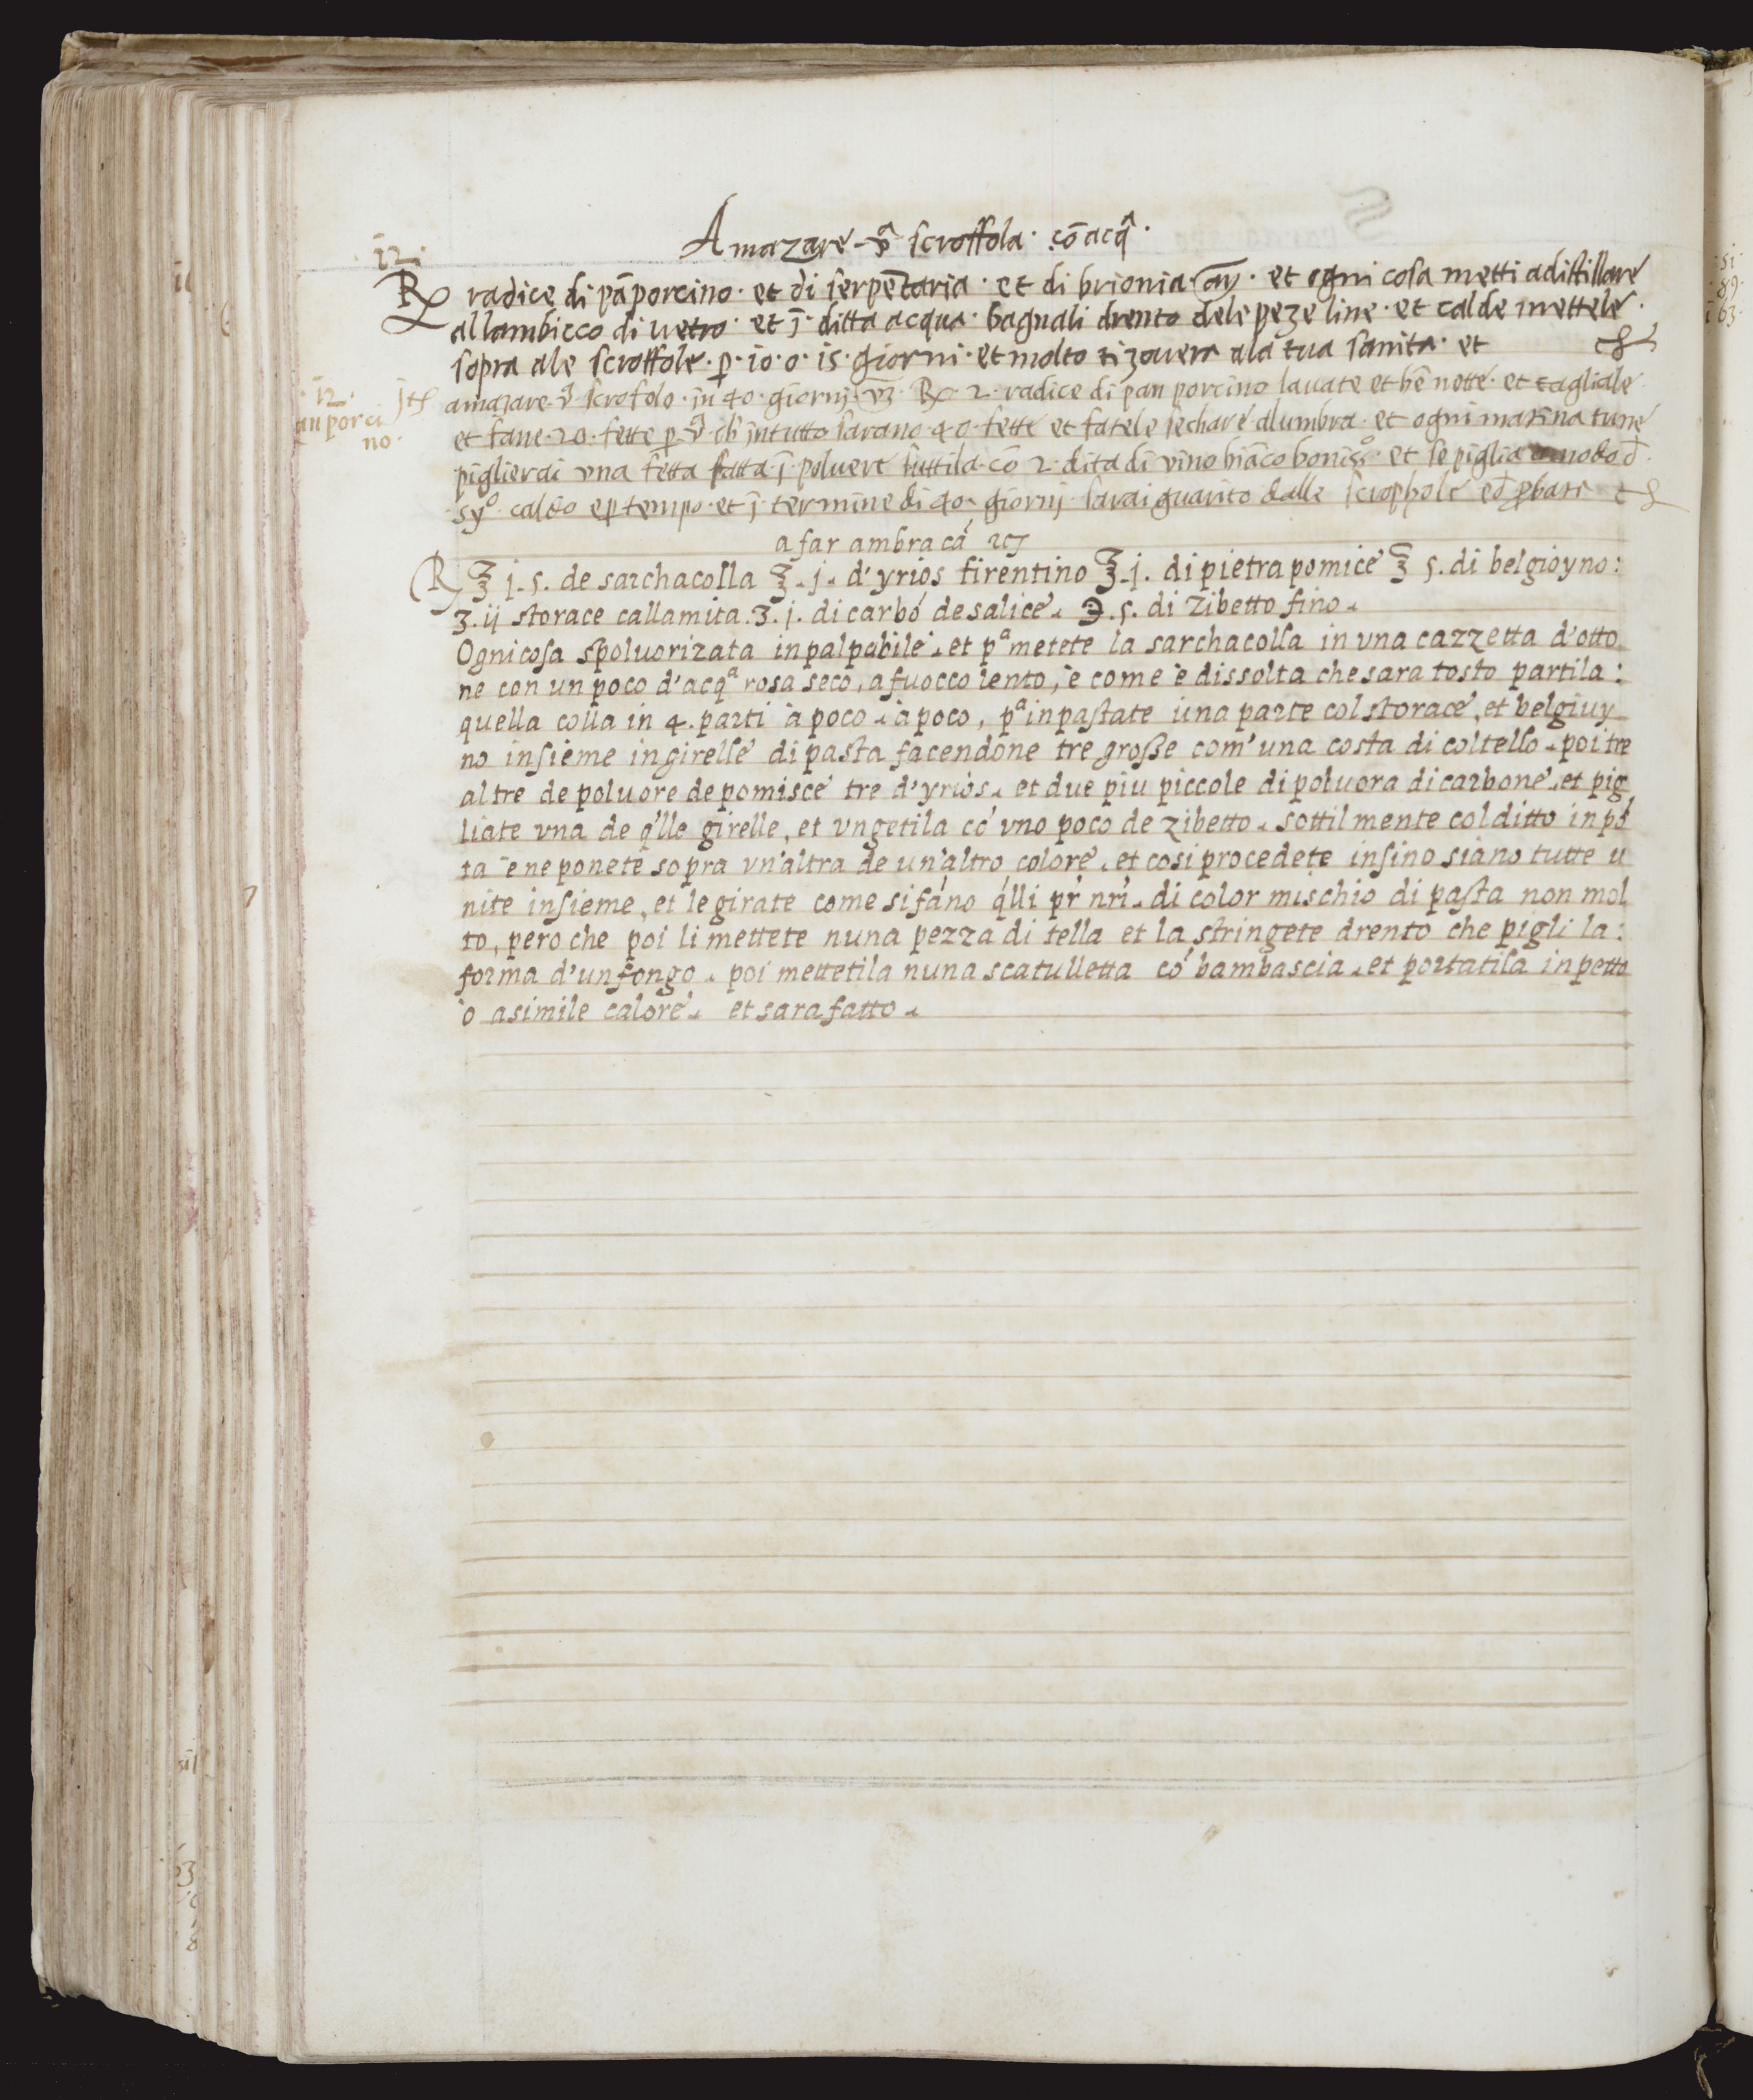 Amazare vᵃ scroffola · cō acqᵃ ·
· 12 ·
℞ radice di pāporcino · et di serpētaria · et di brionia · añ · et ogni cosa metti adistillare
allambicco di uetro · et ī · ditta acqua · bagnali drento dele peze line · et calde mettele ·
sopra ale scroffole · p̱ · io · o · is · giorni · et molto ti zouera ala tua sanita · et
· 12 ·
pan porci
no ·
amazare · vᵃ scrofolo · in 40 · giornj · ℞ 2 · radice di pan porcino lauate et bē nette · et tagliale
et fane · 20 · fette p̱ vᵃ ch' jntutto sarano · 40 · fette et fatele sechare alumbra · et ogni matina tune
piglierai vna fetta fatta ī poluere suttila · cō 2 · dita di vino biāco bonisº · et se piglia a modo d̄
syº · caldo e p̱ tempo · et ī termine di 40 · giornj · sarai guarito dalle scrophole
a far ambracá
℞ ℥ j · s · de sarchacolla ℥ · j · d'yrios firentino ℥ · j · di pietra pomice ℥ s · di belgioyno :
ʒ · ij storace callamita · ʒ · j · di carbó de salice · ℈ · s · di zibetto fino ·
Ogni cosa spoluorizata inpalpabile · et pᵃ metete la sarchacolla in vna cazzetta d'otto
ne con un poco d'acqᵃ rosa seco, a fuocco lento, è come è dissolta che sara tosto partila :
quella colla in 4 · parti à poco · à poco, pᵃ inpastate una parte col storace, et belgiuy
no insieme in girelle di pasta facendone tre grosse com' una costa di coltello · poi tre
altre de poluore de pomisce tre d'yrios · et due piu piccole di poluora di carbone · et pig
liate vna de q'lle girelle, et vngetila có vno poco de zibetto · sottilmente col ditto in pú
ta e ne ponete sopra vn'altra de un'altro colore · et cosi procedete insino siano tutte u
nite insieme, et le girate come si fáno q'lli pr̄ nr̄i · di color mischio di pasta non mol
to, pero che poi li mettete nuna pezza di tella et la stringete drento che pigli la :
forma d'un fongo · poi mettetila nuna scatulletta có bambascia · et portatila in petto
ò a simile calore · et sara fatto ·